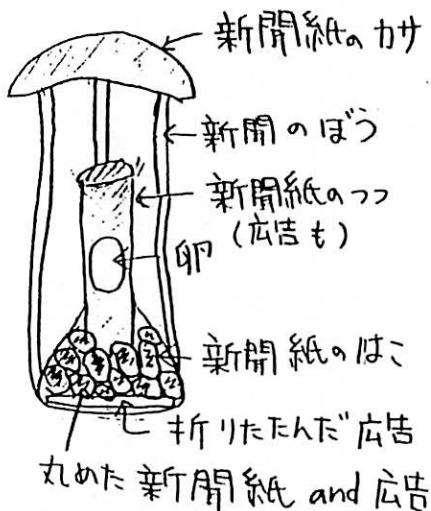 新聞紙のカサ
新聞のぼう
新聞紙のつつ
(広告も)
卵
新聞紙のはこ
折りたたんだ広告
丸めた新聞紙and広告